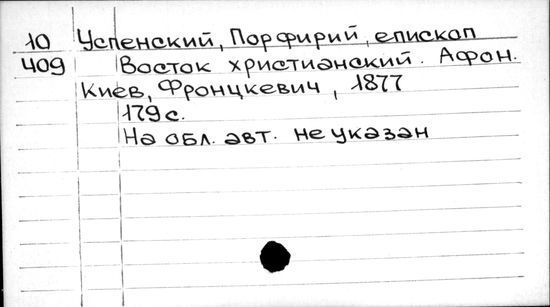 10 Успенский, Порфирий, епископ
409 Восток христианский. Афон.
Киев, Фронцкевич, 1877
179 с.
На обл. авт. не указан